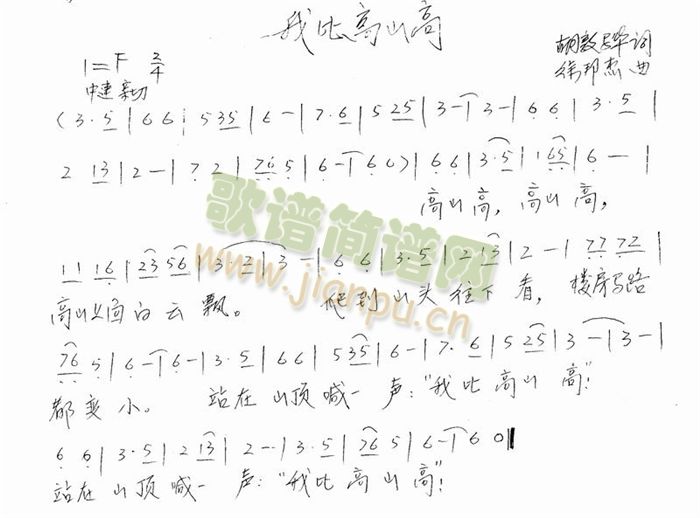 我比高山高
1=F 2/4
胡敦骅词
中速 亲切
徐邦杰 曲
(3·5|66|535|6-|7·6|525|3-|3-|66|3·5|
2 13|2-|72|765|6-|60)|66|3·5|165|6-|
高山高，高山高，
11 16|23 56|3 3|3-|66|3·5|213|2-|77 72|
高山上面白云飘。 爬到山头往下看，楼房马路
76 5|6-|6-|3·5|66|535|6-|7·6|525|3-|3-|
都变小。 站在山顶喊一声："我比高山高！
66|3·5|213|2-|3·5|765|6-|60‖
站在山顶喊一声："我比高山高"！
歌谱简谱网
www.jianpu.cn